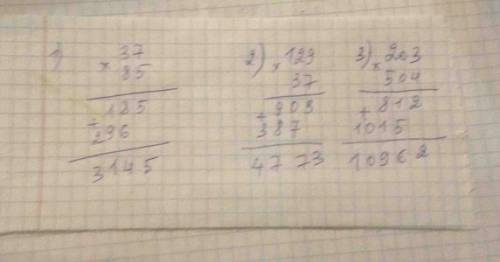 1) 37
× 85
185
+ 296
3145
2) × 129
37
+ 903
387
4773
3) × 203
504
+ 812
1015
10962